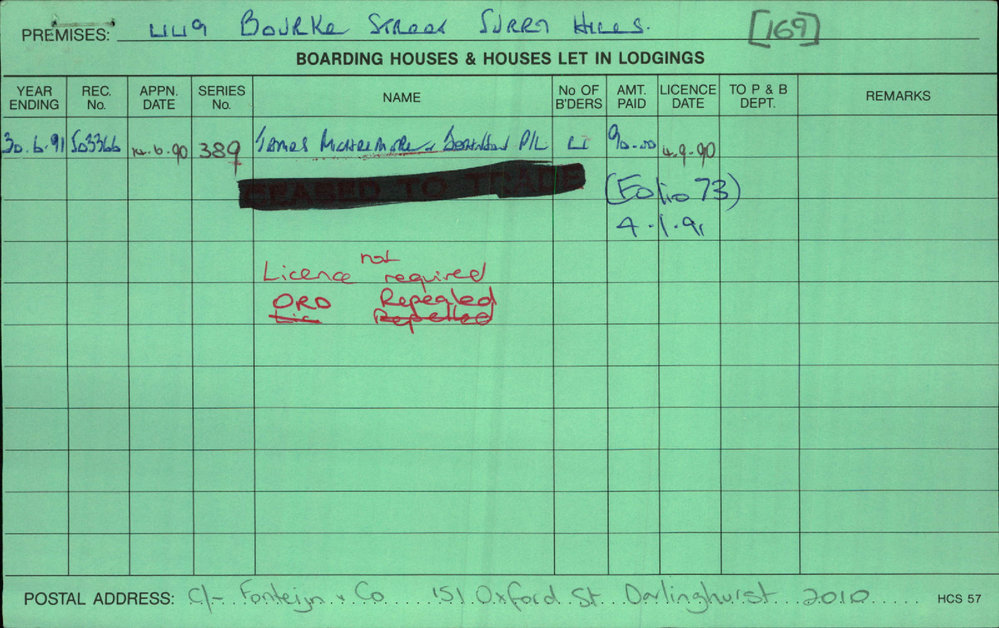 PREMISES: 449 Bourke Street Surry Hills. [169]
BOARDING HOUSES & HOUSES LET IN LODGINGS
YEAR ENDING REC. No. APPN. DATE SERIES No. NAME No OF B'DERS AMT. PAID LICENCE DATE TO P & B DEPT. REMARKS
30.6.91 503366 14.6.90 389 James P/L 90.00 4.9.90
CEASED TO TRADE (Folio 73)
4.1.91
not
Licence required
ORD Repealed
Lic Repelled
POSTAL ADDRESS: C/- Fonteijn & Co 151 Oxford St. Darlinghurst 2010 HCS 57